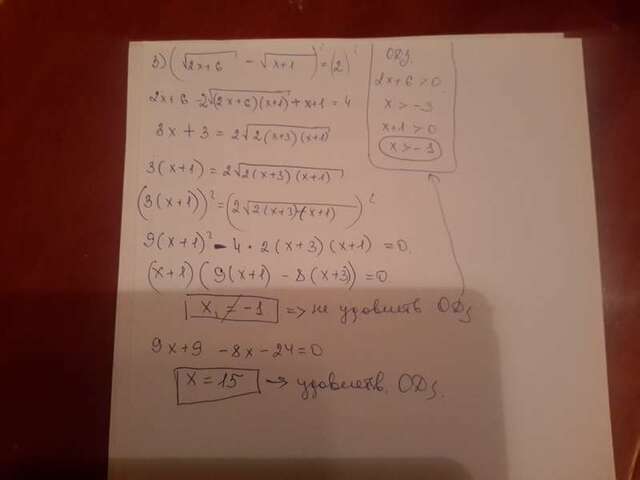 3) (√2x+6 - √x+1)² = (2)²
2x+6 - 2√(2x+6)(x+1) + x+1 = 4
3x+3 = 2√2(x+3)(x+1)
3(x+1) = 2√2(x+3)(x+1)
(3(x+1))² = (2√2(x+3)(x+1))²
9(x+1)² - 4 · 2(x+3)(x+1) = 0.
(x+1)(9(x+1) - 8(x+3)) = 0
x₁ ≠ -1 => не удовлетв ОДЗ
9x+9 - 8x - 24 = 0
x = 15 → удовлетв. ОДЗ.
ОДЗ.
2x+6 > 0
x > -3
x+1 > 0
x > -1